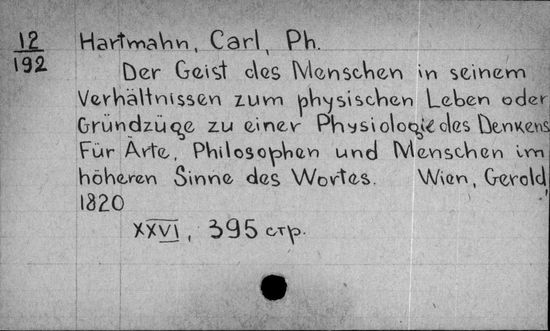 12
192
Hartmahn, Carl, Ph.
Der Geist des Menschen in seinem
Verhältnissen zum physischen Leben oder
Gründzüge zu einer Physiologie des Denkens
Für Ärte, Philosophen und Menschen im
höheren Sinne des Wortes. Wien, Gerold,
1820
XXVI, 395 стр.